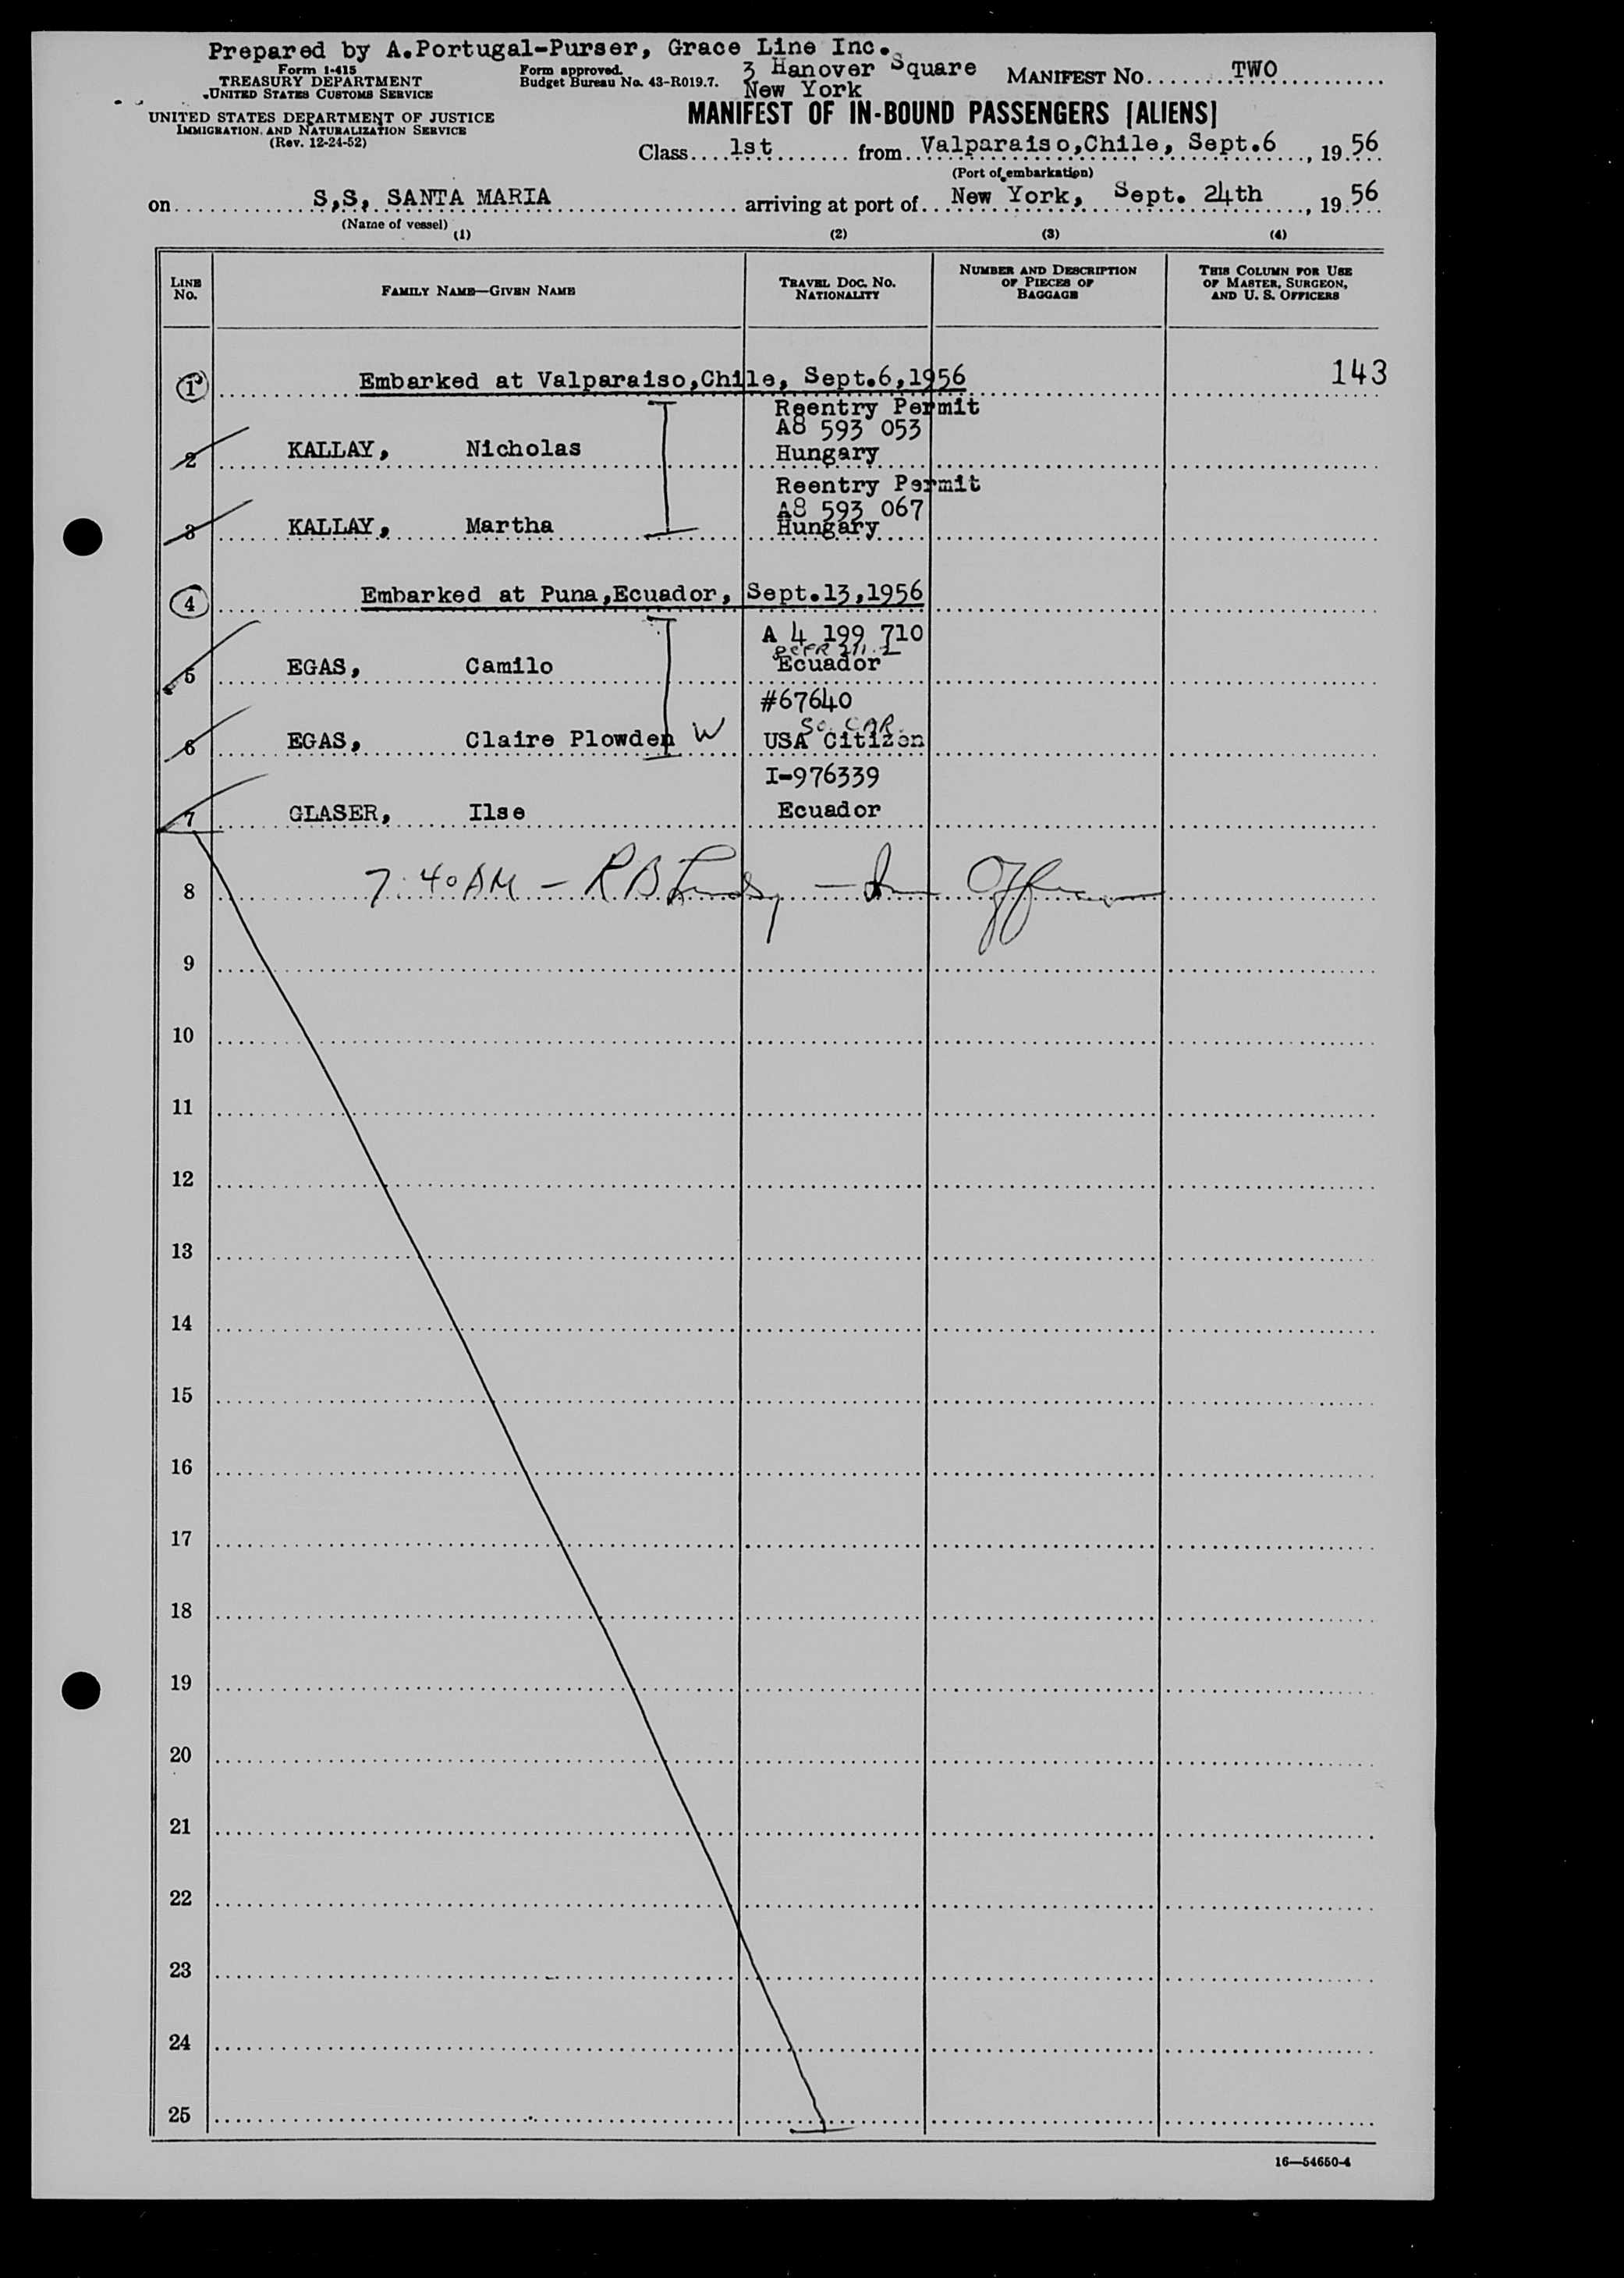 Prepared by A.Portugal-Purser, Grace Line Inc.
Form I-415
TREASURY DEPARTMENT
UNITED STATES CUSTOMS SERVICE
Form approved.
Budget Bureau No. 43-R019.7.
3 Hanover Square
New York
MANIFEST NO. TWO
UNITED STATES DEPARTMENT OF JUSTICE
IMMIGRATION AND NATURALIZATION SERVICE
(Rev. 12-24-52)
MANIFEST OF IN-BOUND PASSENGERS [ALIENS]
Class 1st from Valparaiso,Chile, Sept.6, 1956
(Port of embarkation)
on S,S, SANTA MARIA arriving at port of New York, Sept. 24th, 1956
(Name of vessel)
(1) (2) (3) (4)
LINE NO.
FAMILY NAME—GIVEN NAME
TRAVEL DOC. NO.
NATIONALITY
NUMBER AND DESCRIPTION
OF PIECES OF
BAGGAGE
THIS COLUMN FOR USE
OF MASTER, SURGEON,
AND U. S. OFFICERS
143
1 Embarked at Valparaiso,Chile, Sept.6,1956
Reentry Permit
A8 593 053
2 KALLAY, Nicholas Hungary
Reentry Permit
A8 593 067
3 KALLAY, Martha Hungary
4 Embarked at Puna,Ecuador, Sept.13,1956
A 4 199 710
5 EGAS, Camilo Ecuador
#67640
So. CAR.
6 EGAS, Claire Plowden W USA Citizen
I-976339
7 GLASER, Ilse Ecuador
8 7:40 AM — R B
9
10
11
12
13
14
15
16
17
18
19
20
21
22
23
24
25
16—54650-4